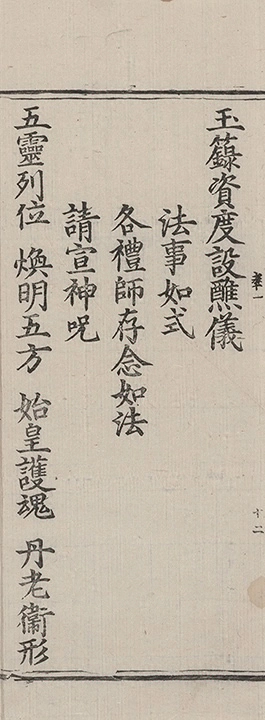 玉籙資度設醮儀
法事如式
各禮師存念如法
請宣神呪
五靈列位 煥明五方 始皇護魂 丹老衞形